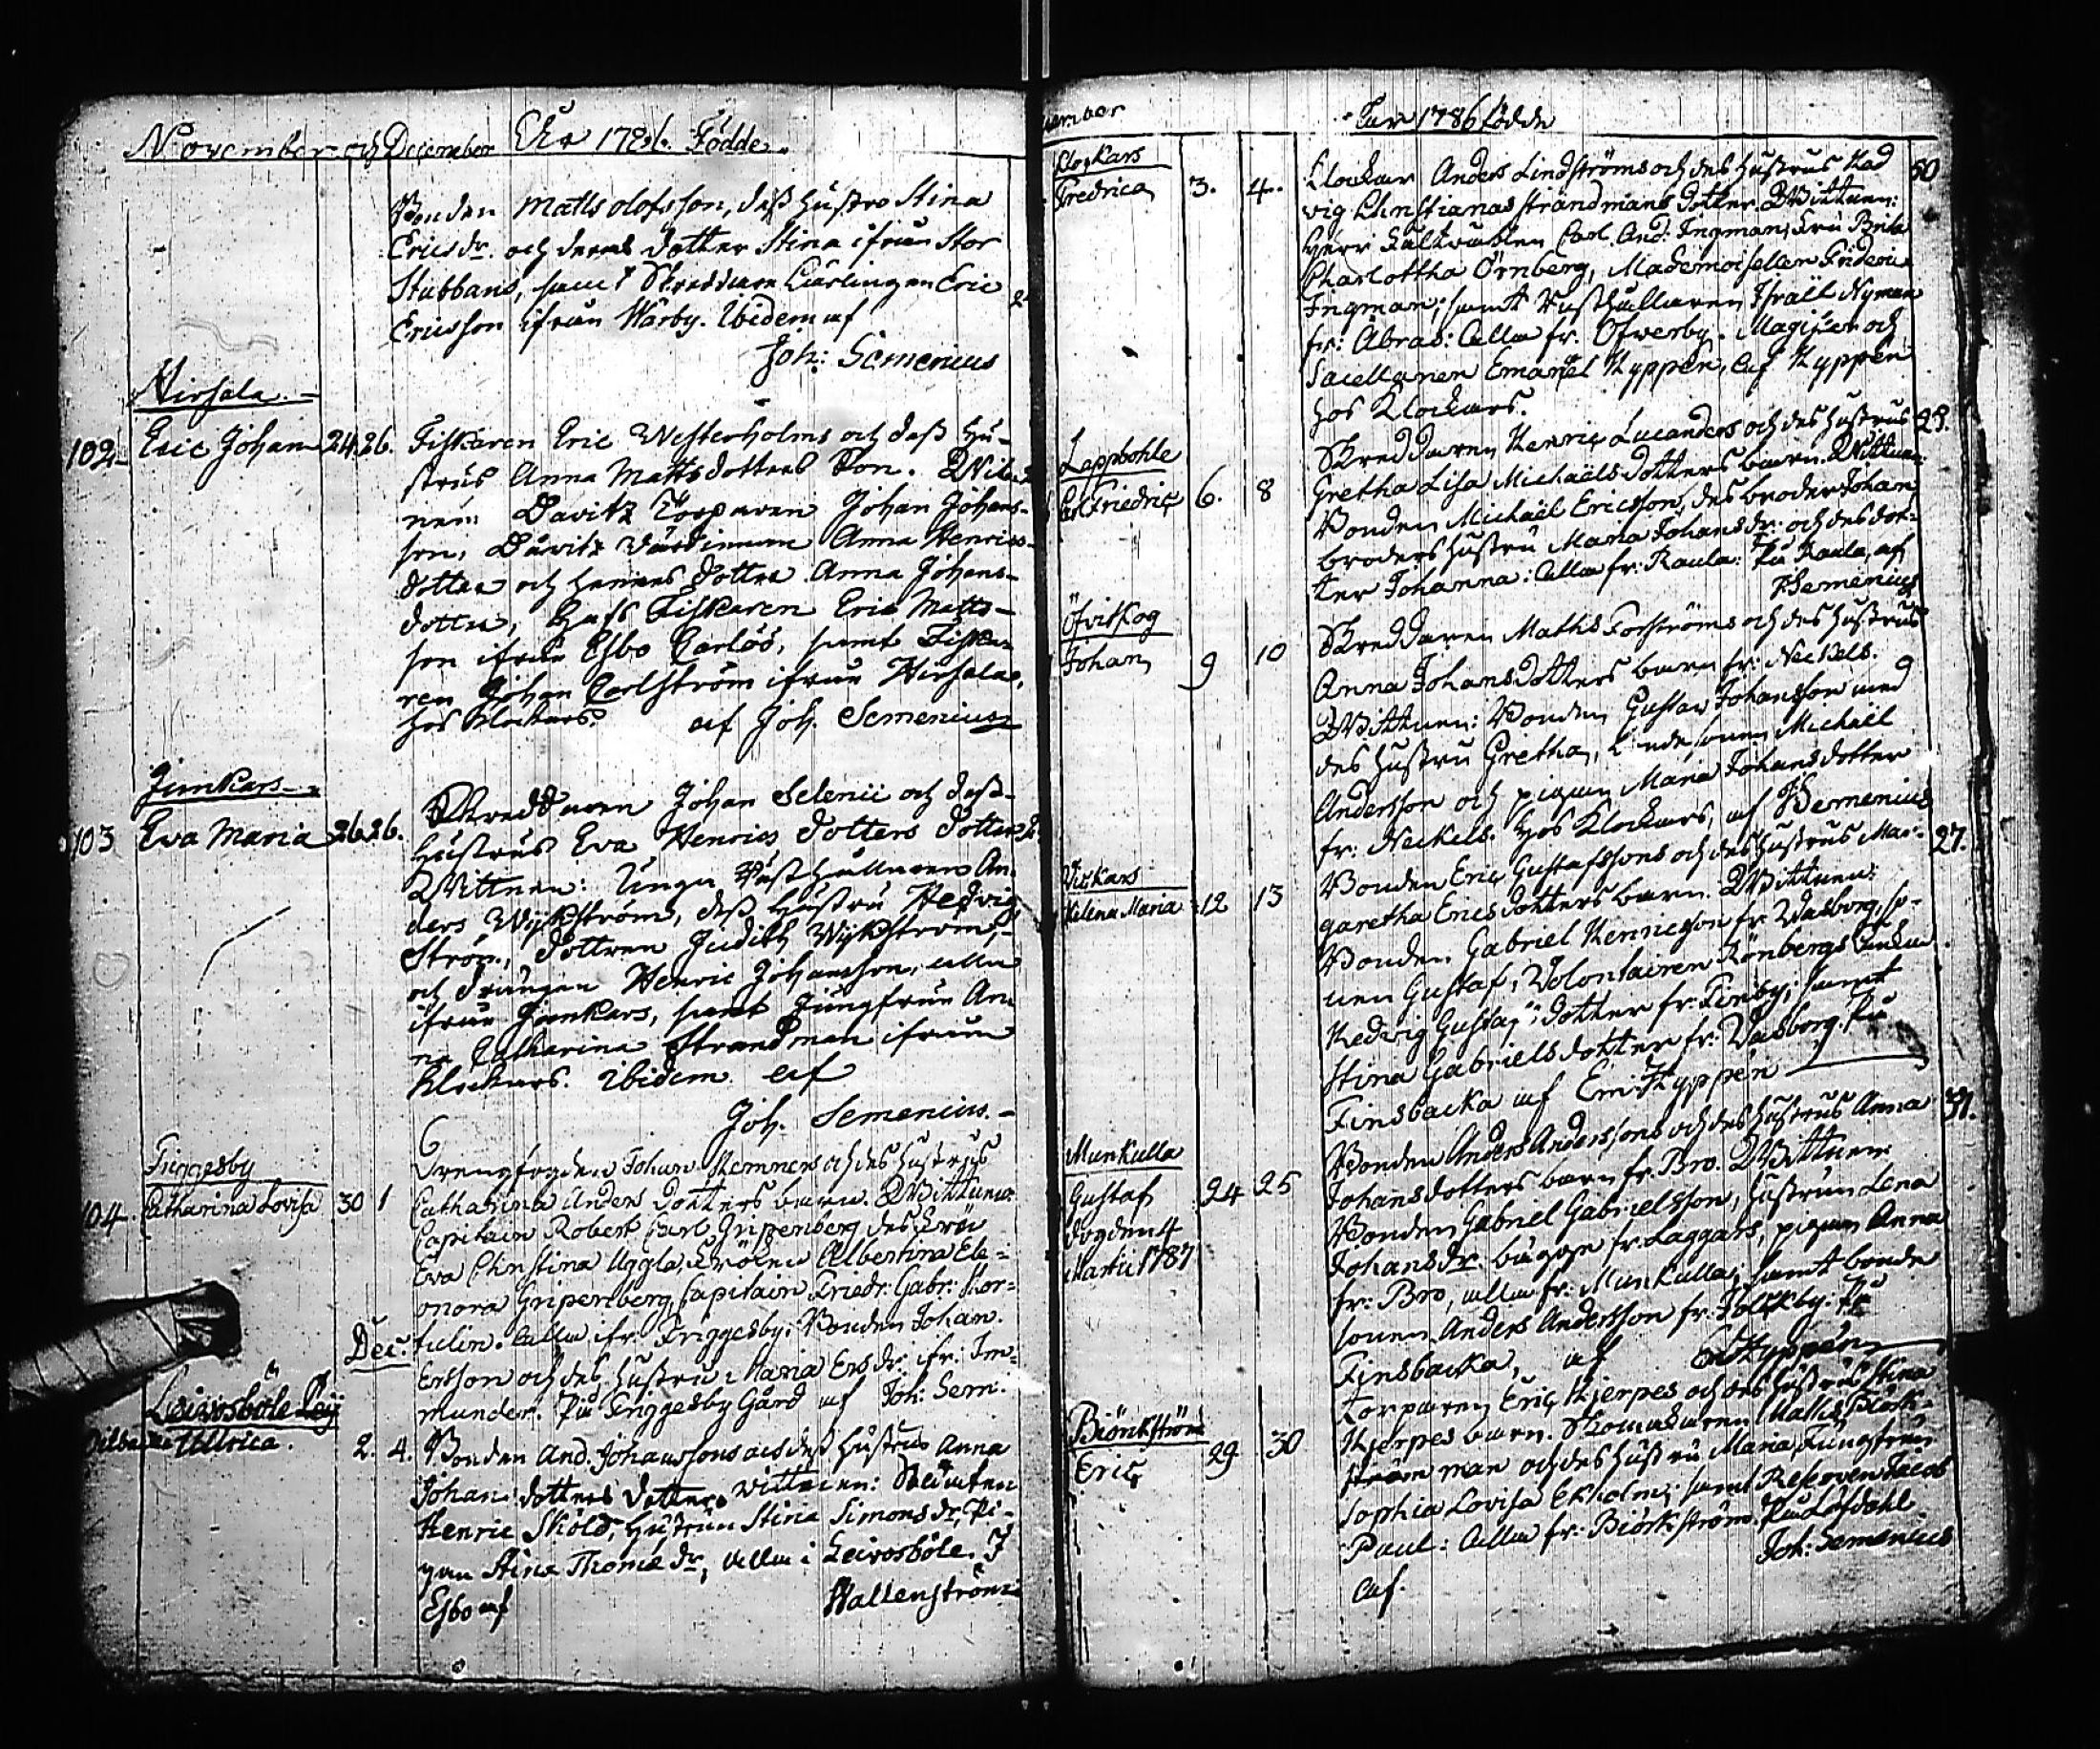 November och December Åhr 1786. Födde.
Bonden Matts Olofsson, dess hustro Stina
Ericsdr. och deras dotter Stina ifrån Stor
Stubbans, samt Skreddare Lärlingen Eric
Ericsson ifrån Wårby. Ibidem af
Joh: Semenius
Hirsala.
102. Eric Johan 24. 26. Fiskaren Eric Westerholms och dess hu-
strus Anna Mattsdotters Son. Witt-
nen: Torparen Johan Johans-
son, Anna Henrics-
dotter och hennes dotter Anna Johans-
dotter, Fiskaren Eric Matts-
son ifrån Esbo samt Fiska-
ren Johan Carlström ifrån Hirsala,
hos Klockars. af Joh. Semenius
Junkars
103 Eva Maria 26. 26. Skreddaren Johan Selenii och dess
hustrus Eva Henrics dotters dotter
Wittnen: Unga Rusthållaren An-
ders Wykström, dess hustru Hedvig
Ström, dottren Judith Wykström,
och drängen Henric Johansson, alla
ifrån Junkars, samt Jungfrun An-
na Catharina Strandman ifrån
Klockars. ibidem af
Joh. Semenius.
Friggesby
104. Catharina Lovisa 30 1 Drengfogden Johan Stenmers och des hustrus
Catharina Anders dotters barn. Wittnen:
Capitain Robert Carl Gripenberg des Fru
Eva Christina Uggla, Fröken Albertina Ele-
onora Gripenberg, Capitain Friedr: Gabr:
Dec: alla ifr: Friggesby. Bonden Johan
Ersson och des hustru Maria Ersdr: ifr:
munder. På Friggesby Gård af Joh: Sem:
Leivosböle
Ullrica. 2. 4. Bonden And. Johanssons och dess hustrus Anna
Johans dotters dotter. Wittnen:
Henric Sköld, hustrun Stina Simonsdr, Pi-
gan Stina Thomædr, alla i Leivosböle. I
Esbo af Wallenström
Åar 1786 födde
Klockars
Fredrica 3. 4. Klockar Anders Lindströms och des hustrus Hed 30
vig Christianas Strandmans dotter. Wittnen:
Herr Carl And: Ingman, Fru Brita
Charlottha Örnberg, Mademoisellen Friderica
Ingman, samt Rusthållaren Israel Nyman
fr: Åbras: alla fr. Öfwerby. Magister och
Sacellanen Emanuel Hyppén, af Hyppén
hos Klockars.
Lappböhle
Carl Friedric 6. 8 Skreddaren Henric Lucanders och des hustrus 23.
Gretha Lisa Michaëls dotters barn. Wittnen:
Bonden Michaël Ericsson, des broder Johan,
broders hustru Maria Johansdr: och des dot-
ter Johanna: alla fr: Kaula: På Kaula, af
Semenius
Öfvitskog
Johan 9 10 Skreddaren Matts Forströms och des hustrus
Anna Johansdotters barn fr: Neckels. 9
Wittnen: Bonden Gustav Johansson med
des hustru Gretha, Michaël
Andersson och pigan Maria Johansdotter
fr: Neckels. hos Klockars, af Semenius
Vickars
Helena Maria 12 13 Bonden Eric Gustafssons och des hustrus Mar- 27.
garetha Erics dotters barn. Wittnen:
Bonden Gabriel Henricsson fr: Wasborg, so-
nen Gustaf, Volontairen Rönbergs Enka
Hedvig Gustaf: dotter fr: Finby; samt
Stina Gabrielsdotter fr: Wasborg. På
Finsbacka af Em: Hyppén
Munkulla
Gustaf 24 25 Bonden Anders Anderssons och des hustrus Anna 31.
dog den 4
Martii 1787
Johansdotters barn fr. Bro. Wittnen:
Bonden Gabriel Gabrielsson, hustrun Lena
Johansdr. bägge fr. Laggars, pigan Anna
fr: Bro, alla fr: Munkulla; samt bonde
sonen Anders Andersson fr: På
Finsbacka, af Em: Hyppén
Björkström
Eric 29 30 Torparen Eric Kjerpes och des hustrus Stina
Kjerpes barn. Skomakaren Matts
man och des hustru Maria, Jungfrun
Sophia Lovisa Ekholm; samt Reserven Jacob
Paul: alla fr: Björkström.
af. Joh: Semenius